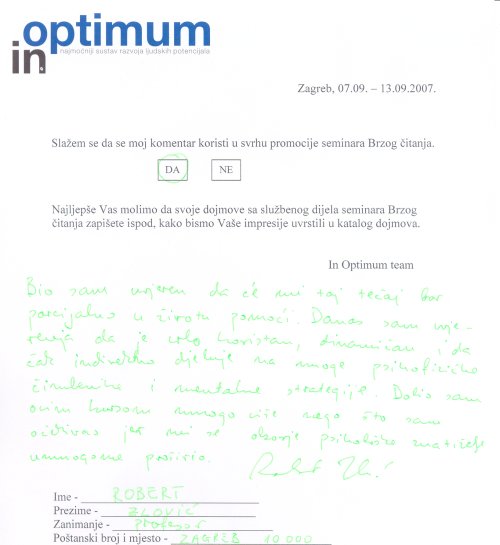 in optimum
najmoćniji sustav razvoja ljudskih potencijala
Zagreb, 07.09. – 13.09.2007.
Slažem se da se moj komentar koristi u svrhu promocije seminara Brzog čitanja.
DA NE
Najljepše Vas molimo da svoje dojmove sa službenog dijela seminara Brzog
čitanja zapišete ispod, kako bismo Vaše impresije uvrstili u katalog dojmova.
In Optimum team
Bio sam uvjeren da će mi taj tečaj bar
parcijalno u životu pomoći. Danas sam
da je vrlo koristan, dinamičan i da
čak indirektno djeluje na mnoge psihofizičke
čimbenike i mentalne strategije. Dobio sam
ovim kursom mnogo više nego što sam
očekivao jer mi se psihološke
umnogome
Ime - ROBERT
Prezime - ZLOVIĆ
Zanimanje - Profesor
Poštanski broj i mjesto - ZAGREB 10 000